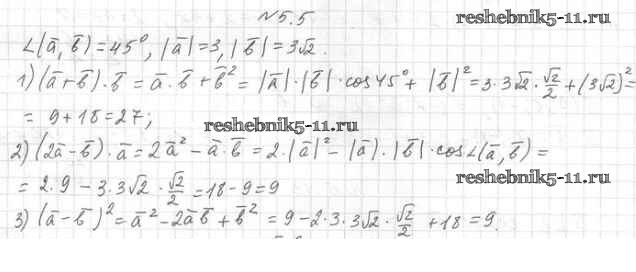 №5.5
reshebnik5-11.ru
∠(a̅, b̅)=45°, |a̅|=3, |b̅|=3√2.
1) (a̅+b̅)·b̅ = a̅·b̅+b̅² = |a̅|·|b̅|·cos45°+|b̅|²=3·3√2·√2/2+(3√2)²=
= 9+18=27;
reshebnik5-11.ru
2) (2a̅-b̅)·a̅=2a̅²-a̅·b̅=2·|a̅|²-|a̅|·|b̅|·cos∠(a̅,b̅)=
= 2·9-3·3√2·√2/2=18-9=9
reshebnik5-11.ru
3) (a̅-b̅)²=a̅²-2a̅b̅+b̅²=9-2·3·3√2·√2/2+18=9.